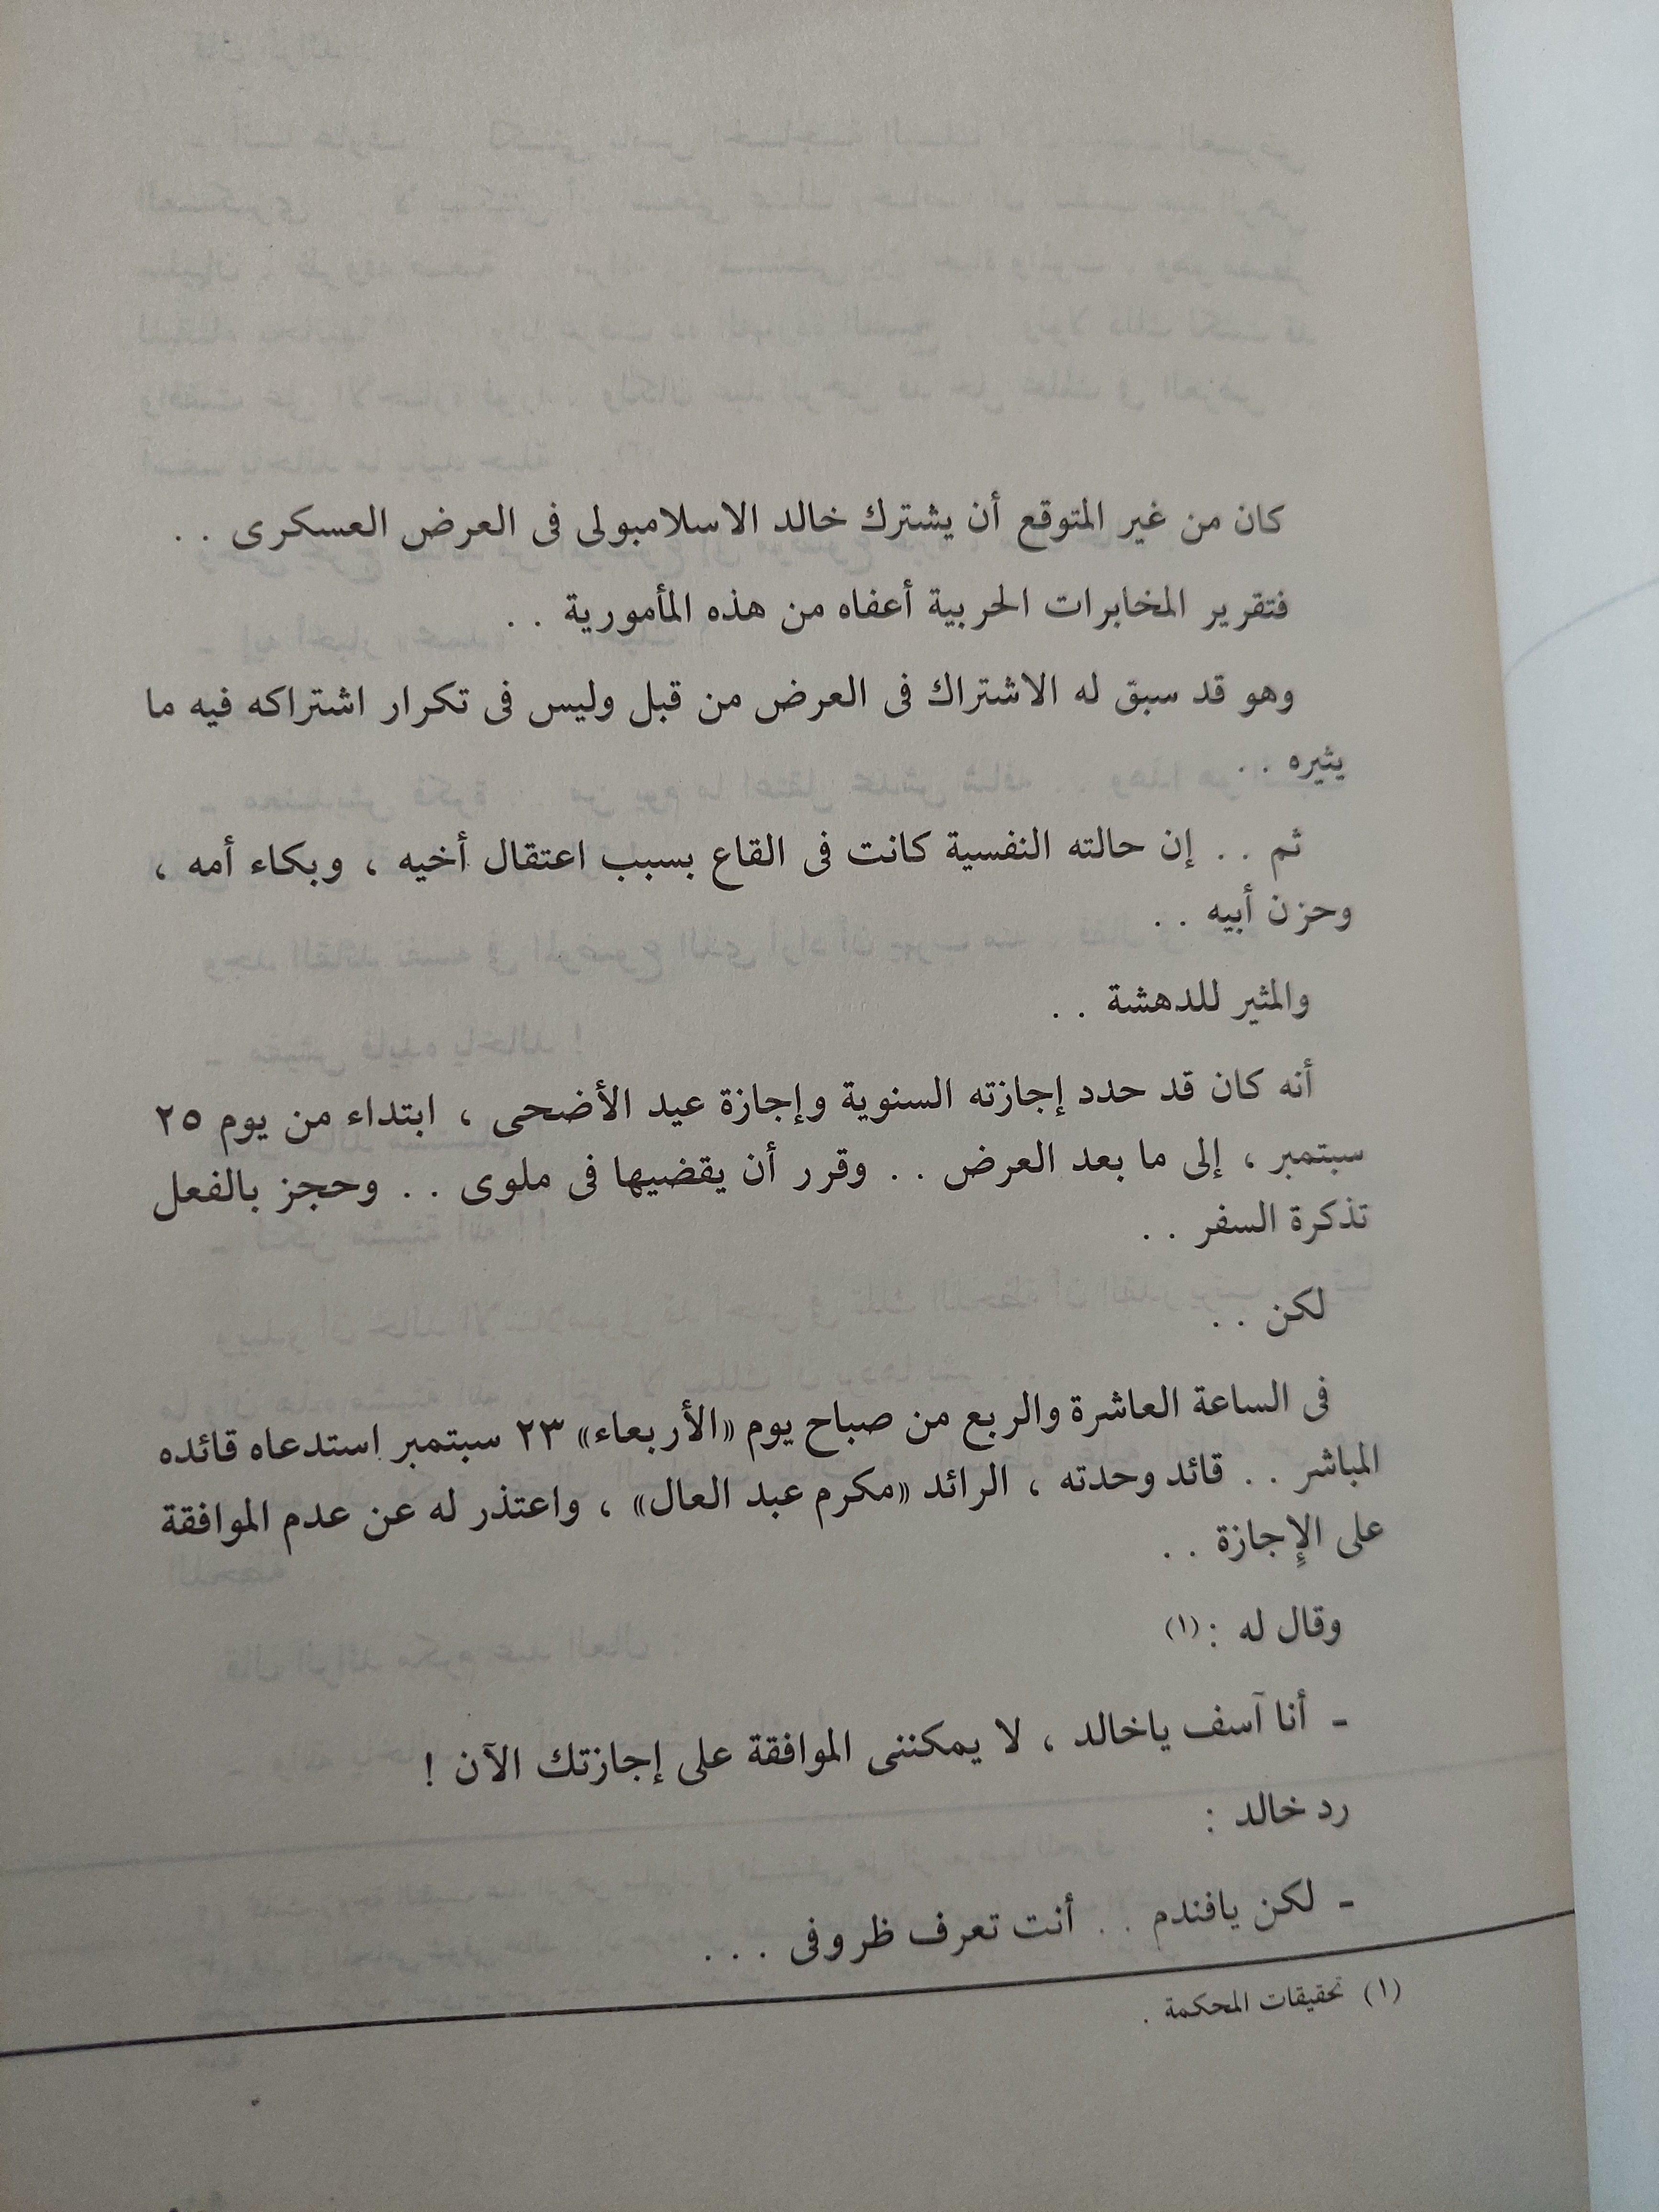 كان من غير المتوقع أن يشترك خالد الاسلامبولى فى العرض العسكرى . .
فتقرير المخابرات الحربية أعفاه من هذه المأمورية . .
وهو قد سبق له الاشتراك فى العرض من قبل وليس فى تكرار اشتراكه فيه ما
يثيره . .
ثم . . إن حالته النفسية كانت فى القاع بسبب اعتقال أخيه ، وبكاء أمه ،
وحزن أبيه . .
والمثير للدهشة . .
أنه كان قد حدد إجازته السنوية وإجازة عيد الأضحى ، ابتداء من يوم ٢٥
سبتمبر ، إلى ما بعد العرض . . وقرر أن يقضيها فى ملوى . . وحجز بالفعل
تذكرة السفر . .
لكن . .
فى الساعة العاشرة والربع من صباح يوم «الأربعاء» ٢٣ سبتمبر استدعاه قائده
المباشر . . قائد وحدته ، الرائد «مكرم عبد العال» ، واعتذر له عن عدم الموافقة
على الإِجازة . .
وقال له :(١)
- أنا آسف ياخالد ، لا يمكننى الموافقة على إجازتك الآن !
رد خالد :
- لكن يافندم . . أنت تعرف ظروفى . . .
(١) تحقيقات المحكمة .